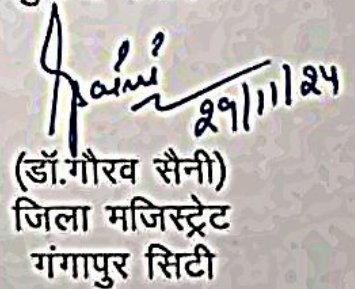 Saini
29/11/24
(डॉ.गौरव सैनी)
जिला मजिस्ट्रेट
गंगापुर सिटी